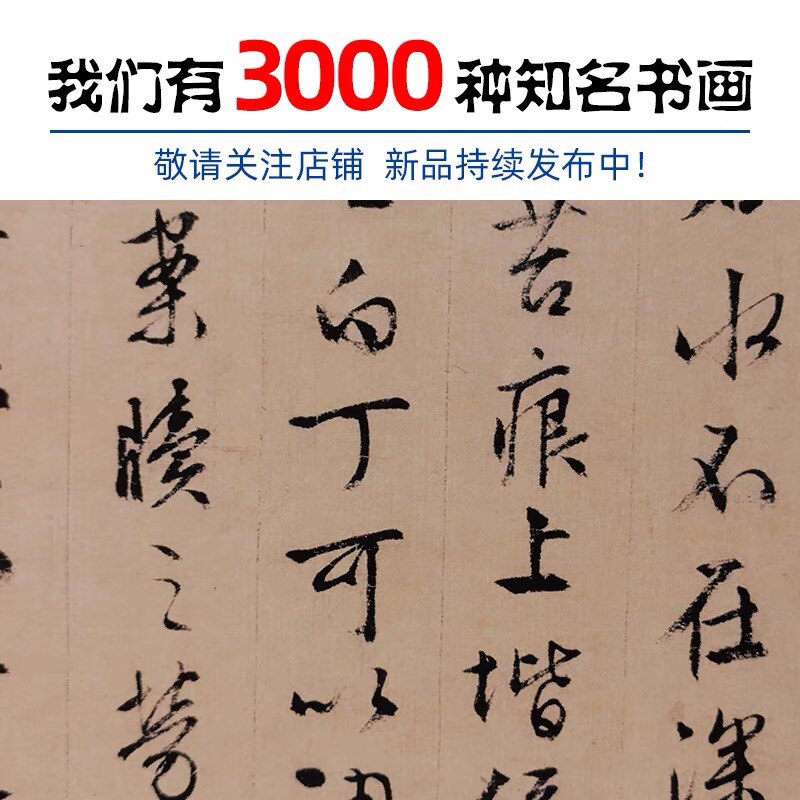 我们有3000种知名书画
敬请关注店铺 新品持续发布中!
水不在深
苔痕上堦
白丁可以
案牘之劳